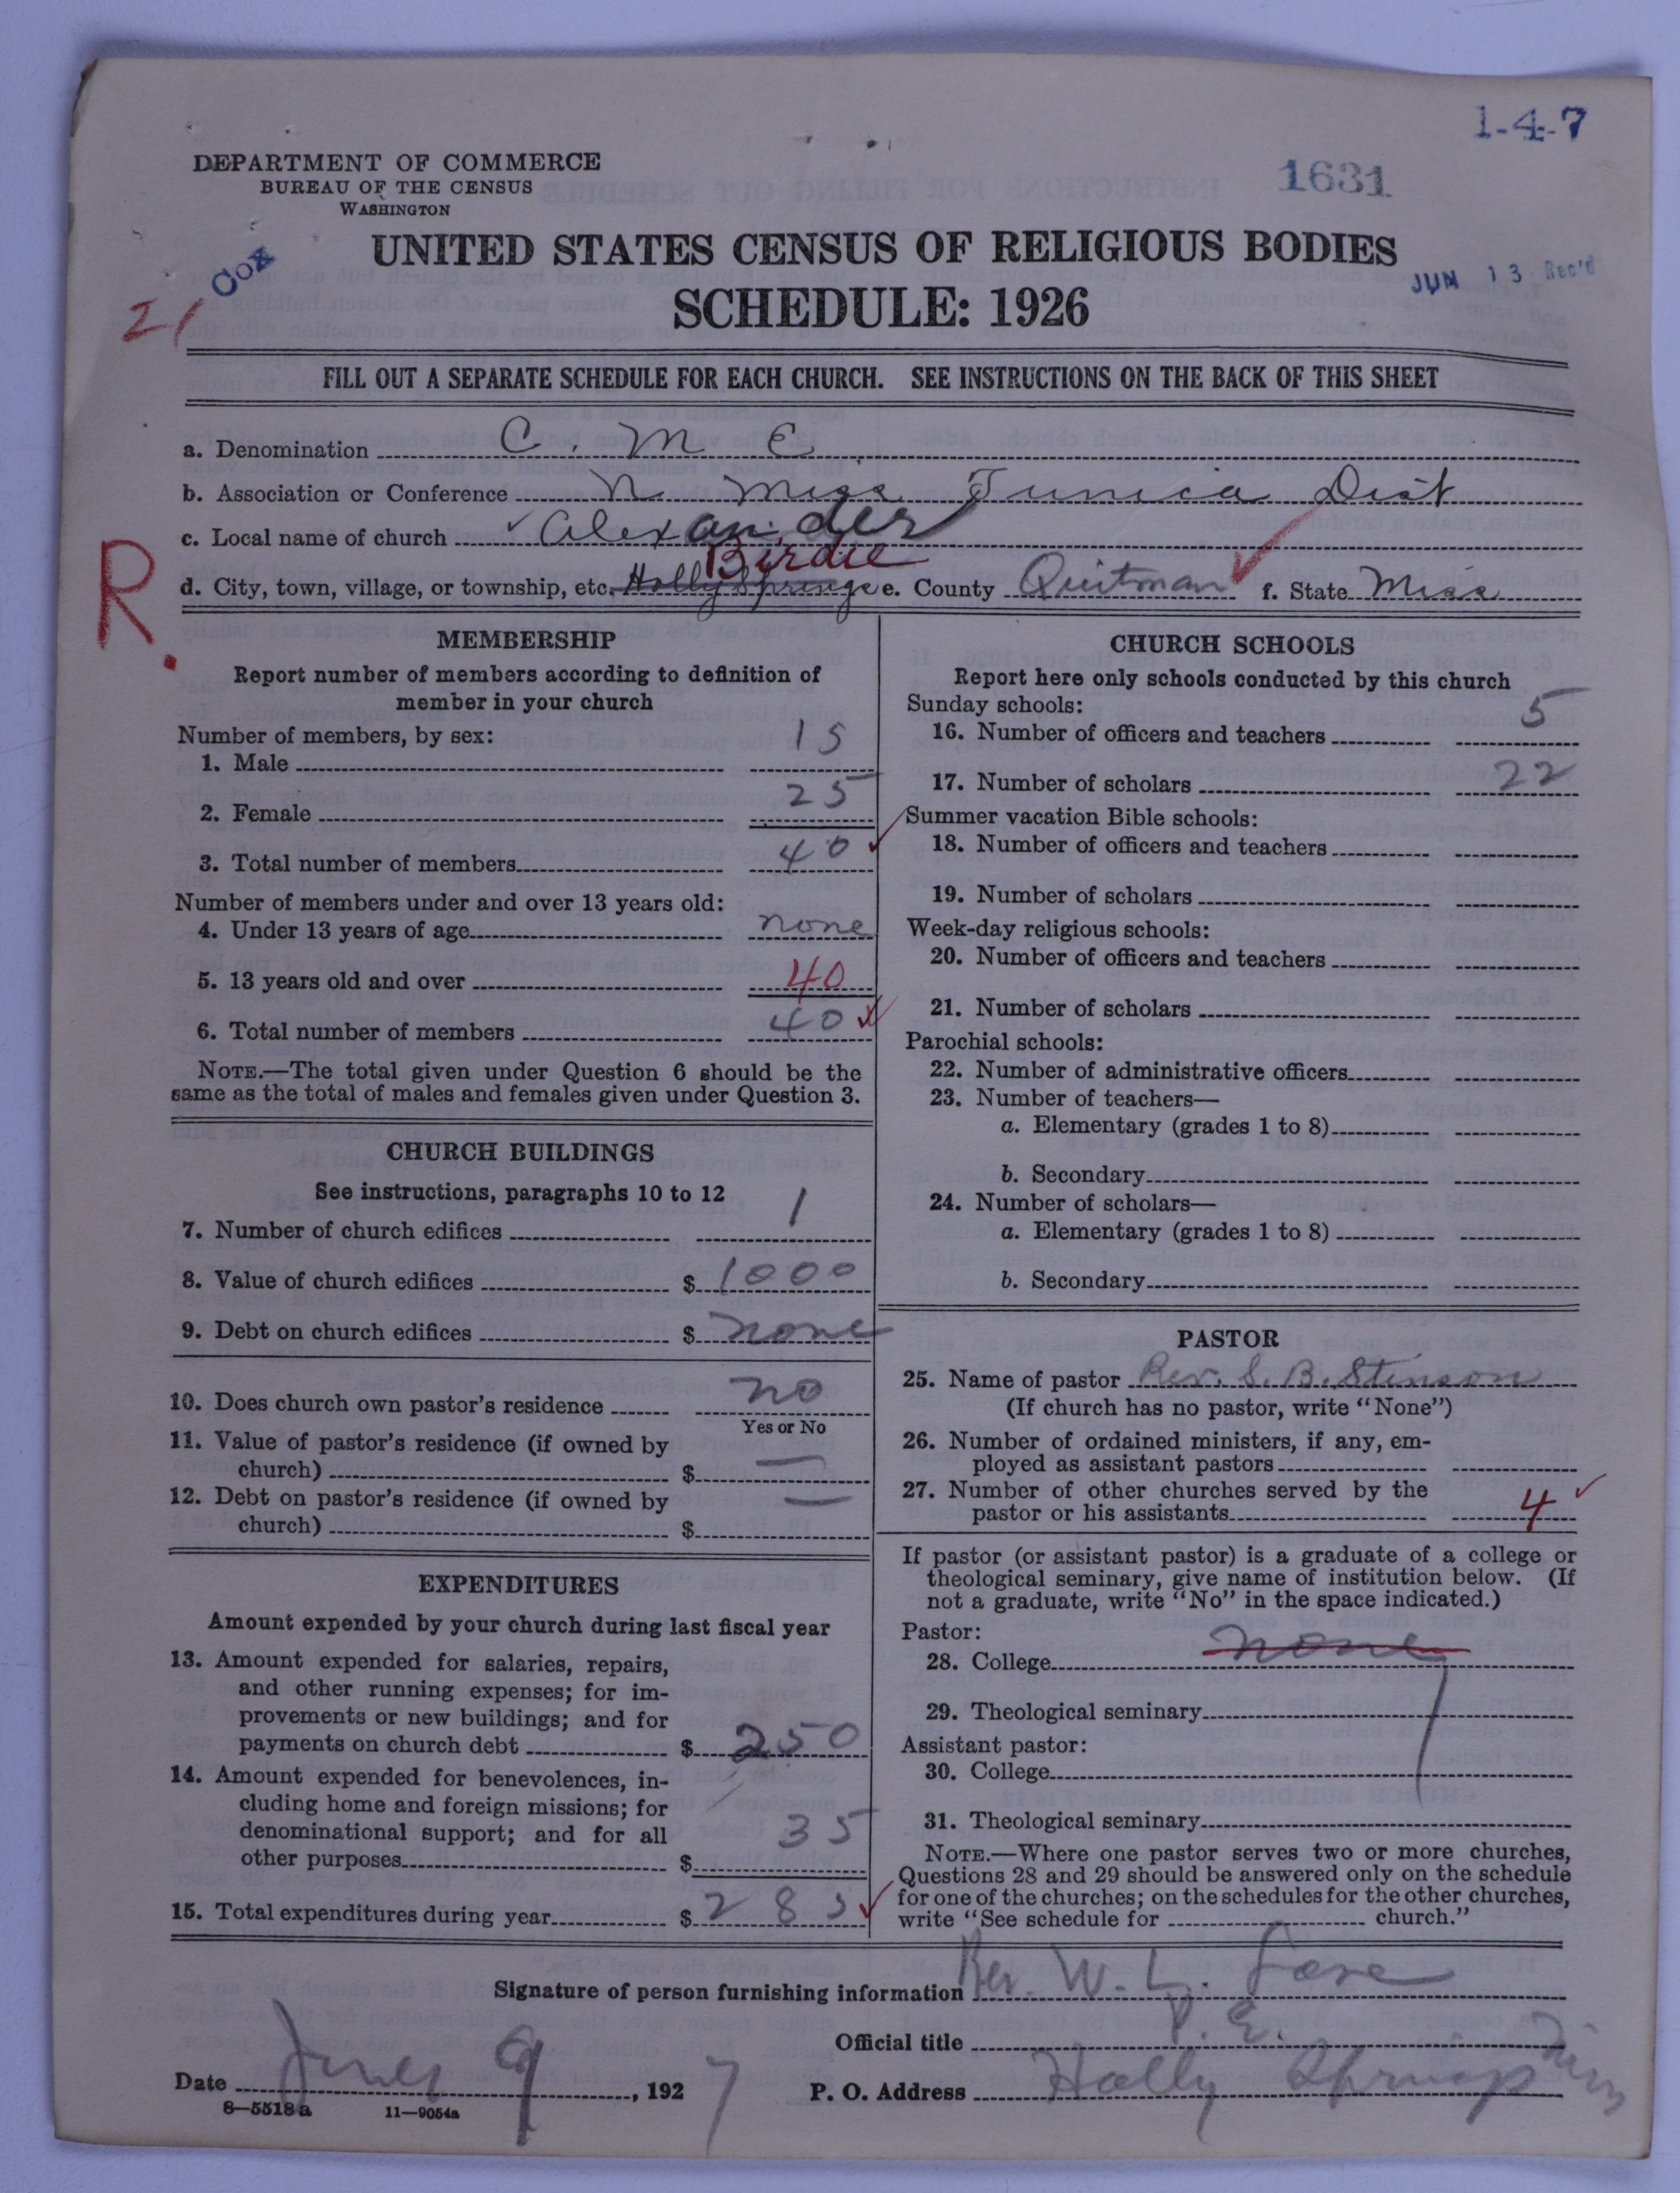 1-4-7
1631
DEPARTMENT OF COMMERCE
BUREAU OF THE CENSUS
WASHINGTON
Cox
21
UNITED STATES CENSUS OF RELIGIOUS BODIES
JUN 13 Rec'd
SCHEDULE: 1926
FILL OUT A SEPARATE SCHEDULE FOR EACH CHURCH. SEE INSTRUCTIONS ON THE BACK OF THIS SHEET
a. Denomination C. M. E.
b. Association or Conference N. Miss Tunica Dist
c. Local name of church Alexander
Birdie
R.
d. City, town, village, or township, etc. Holly Springs e. County Quitman f. State Miss
MEMBERSHIP
Report number of members according to definition of
member in your church
Number of members, by sex:
1. Male 15
2. Female 25
3. Total number of members 40
Number of members under and over 13 years old:
4. Under 13 years of age none
5. 13 years old and over 40
6. Total number of members 40
NOTE.—The total given under Question 6 should be the
same as the total of males and females given under Question 3.
CHURCH BUILDINGS
See instructions, paragraphs 10 to 12
7. Number of church edifices 1
8. Value of church edifices $ 1000
9. Debt on church edifices $ none
10. Does church own pastor's residence no
Yes or No
11. Value of pastor's residence (if owned by
church) $ —
12. Debt on pastor's residence (if owned by
church) $ —
EXPENDITURES
Amount expended by your church during last fiscal year
13. Amount expended for salaries, repairs,
and other running expenses; for im-
provements or new buildings; and for
payments on church debt $ 250
14. Amount expended for benevolences, in-
cluding home and foreign missions; for
denominational support; and for all
other purposes $ 35
15. Total expenditures during year $ 285
CHURCH SCHOOLS
Report here only schools conducted by this church
Sunday schools:
16. Number of officers and teachers 5
17. Number of scholars 22
Summer vacation Bible schools:
18. Number of officers and teachers
19. Number of scholars
Week-day religious schools:
20. Number of officers and teachers
21. Number of scholars
Parochial schools:
22. Number of administrative officers
23. Number of teachers—
a. Elementary (grades 1 to 8)
b. Secondary
24. Number of scholars—
a. Elementary (grades 1 to 8)
b. Secondary
PASTOR
25. Name of pastor Rev. S. B. Stinson
(If church has no pastor, write "None")
26. Number of ordained ministers, if any, em-
ployed as assistant pastors
27. Number of other churches served by the
pastor or his assistants 4
If pastor (or assistant pastor) is a graduate of a college or
theological seminary, give name of institution below. (If
not a graduate, write "No" in the space indicated.)
Pastor:
28. College none
29. Theological seminary
Assistant pastor:
30. College
31. Theological seminary
NOTE.—Where one pastor serves two or more churches,
Questions 28 and 29 should be answered only on the schedule
for one of the churches; on the schedules for the other churches,
write "See schedule for church."
Signature of person furnishing information Rev. W. L.
Official title P. E.
Date June 9, 1927 P. O. Address Holly Springs Miss
8—5518a 11—9054a